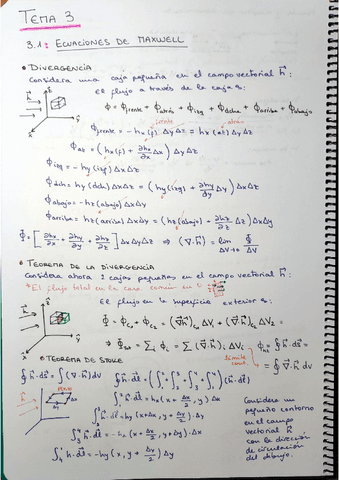 TEMA 3
3.1: ECUACIONES DE MAXWELL
• DIVERGENCIA
Considera una caja pequeña en el campo vectorial h⃗:
el flujo a través de la caja s:
Φ = Φfrente + Φatrás + Φizq + Φdcha + Φarriba + Φabajo
frente atrás
Φfrente = -hx(f) ΔyΔz = hx(at) ΔyΔz
Φat = (hx(f) + ∂hx/∂x Δx) ΔyΔz
Φizq = -hy(izq) ΔxΔz
Φdch = hy(dch) ΔxΔz = (hy(izq) + ∂hy/∂y Δy) ΔxΔz
Φabajo = -hz(abajo) ΔxΔy
Φarriba = hz(arriba) ΔxΔy = (hz(abajo) + ∂hz/∂z Δz) ΔxΔy
Φ = [∂hx/∂x + ∂hy/∂y + ∂hz/∂z] ΔxΔyΔz ⇒ (∇·h⃗) = lim ΔV→0 Φ/ΔV
• TEOREMA DE LA DIVERGENCIA
Considera ahora 2 cajas pequeñas en el campo vectorial h⃗:
*El flujo total en la cara común es 0
el flujo en la superficie exterior s:
Φ = Φc1 + Φc2 = (∇h⃗)c1 ΔV1 + (∇h⃗)c2 ΔV2 =
⇒ Φtot = Σi Φi = Σ (∇h⃗)i ΔVi
Φtot = ∮ h⃗·ds⃗ =
= ∮ ∇·h⃗ dV
límite cont.
• TEOREMA DE STOKE
∮ h⃗·ds⃗ = ∫(∇·h⃗)dV
∮ h⃗·dl⃗ = (∫₁² + ∫₂³ + ∫₃⁴ + ∫₄¹)(h⃗·dl⃗)
∫₁² h⃗·dl⃗ = hx(x + Δx/2, y) Δx
∫₂³ h⃗·dl⃗ = hy(x+Δx, y + Δy/2)·Δy
∫₃⁴ h⃗·dl⃗ = -hx(x + Δx/2, y+Δy)·Δx
∫₄¹ h⃗·dl⃗ = -hy(x, y + Δy/2) Δy
Considera un
pequeño contorno
en el campo
vectorial h⃗
con la dirección
de circulación
del dibujo.